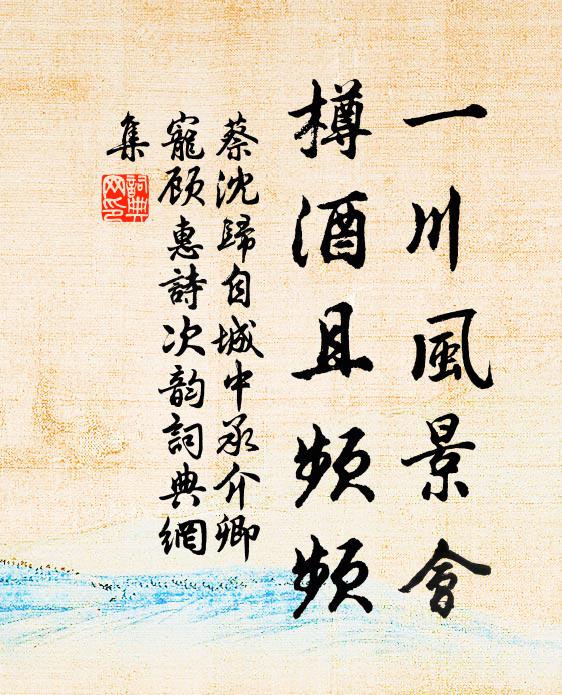 一川風景會
樽酒且頻頻
蔡沈歸自城中承介卿
寵顧惠詩次韵詞典網
集
詞典
网印